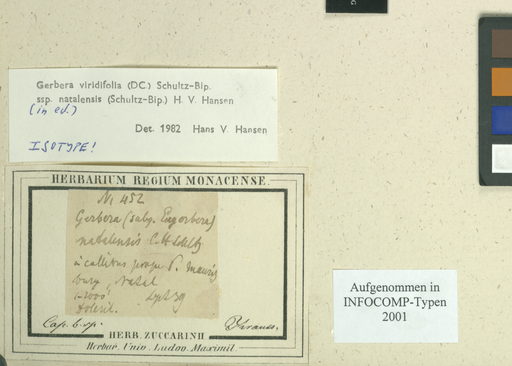 Gerbera viridifolia (DC.) Schultz-Bip.
ssp. natalensis (Schultz-Bip.) H. V. Hansen
(in ed.)
Det. 1982 Hans V. Hansen
ISOTYPE!
HERBARIUM REGIUM MONACENSE.
N 452
Gerbera (subg. Eugerbera)
natalensis C.H. Schltz
in collibus prope P. Mauritz
burg, Natal
1-2000' Spt 39
Cap. b. sp. Krauss.
HERB. ZUCCARINII
Herbar. Univ. Ludov. Maximil.
Aufgenommen in
INFOCOMP-Typen
2001